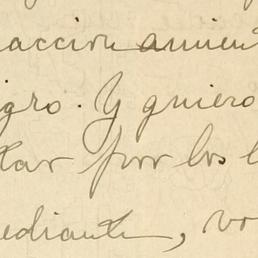 accionamien
igro. Y quiero
tar por los l
ediante, vo